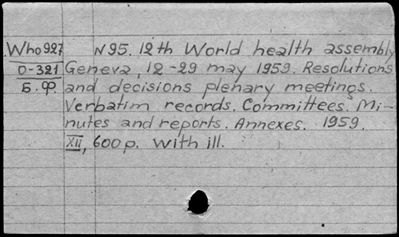 Who927 N95. 12th World health assembly
O-321 Geneva, 12-29 may 1959. Resolutions
Б.Ф. and decisions plenary meetings.
Verbatim records. Committees. Mi-
nutes and reports. Annexes. 1959.
XII, 600p. with ill.